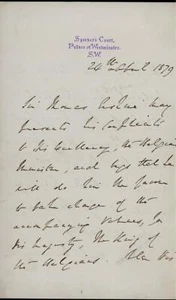 Speaker's Court,
Palace of Westminster.
S.W.
24th April 1879
Sir Thomas Erskine May
presents his compliments
to His Excellency, the Belgian
Minister, and begs that he
will do him the favor
to take charge of the
accompanying volumes, for
His Majesty, The King of
the Belgians. When His